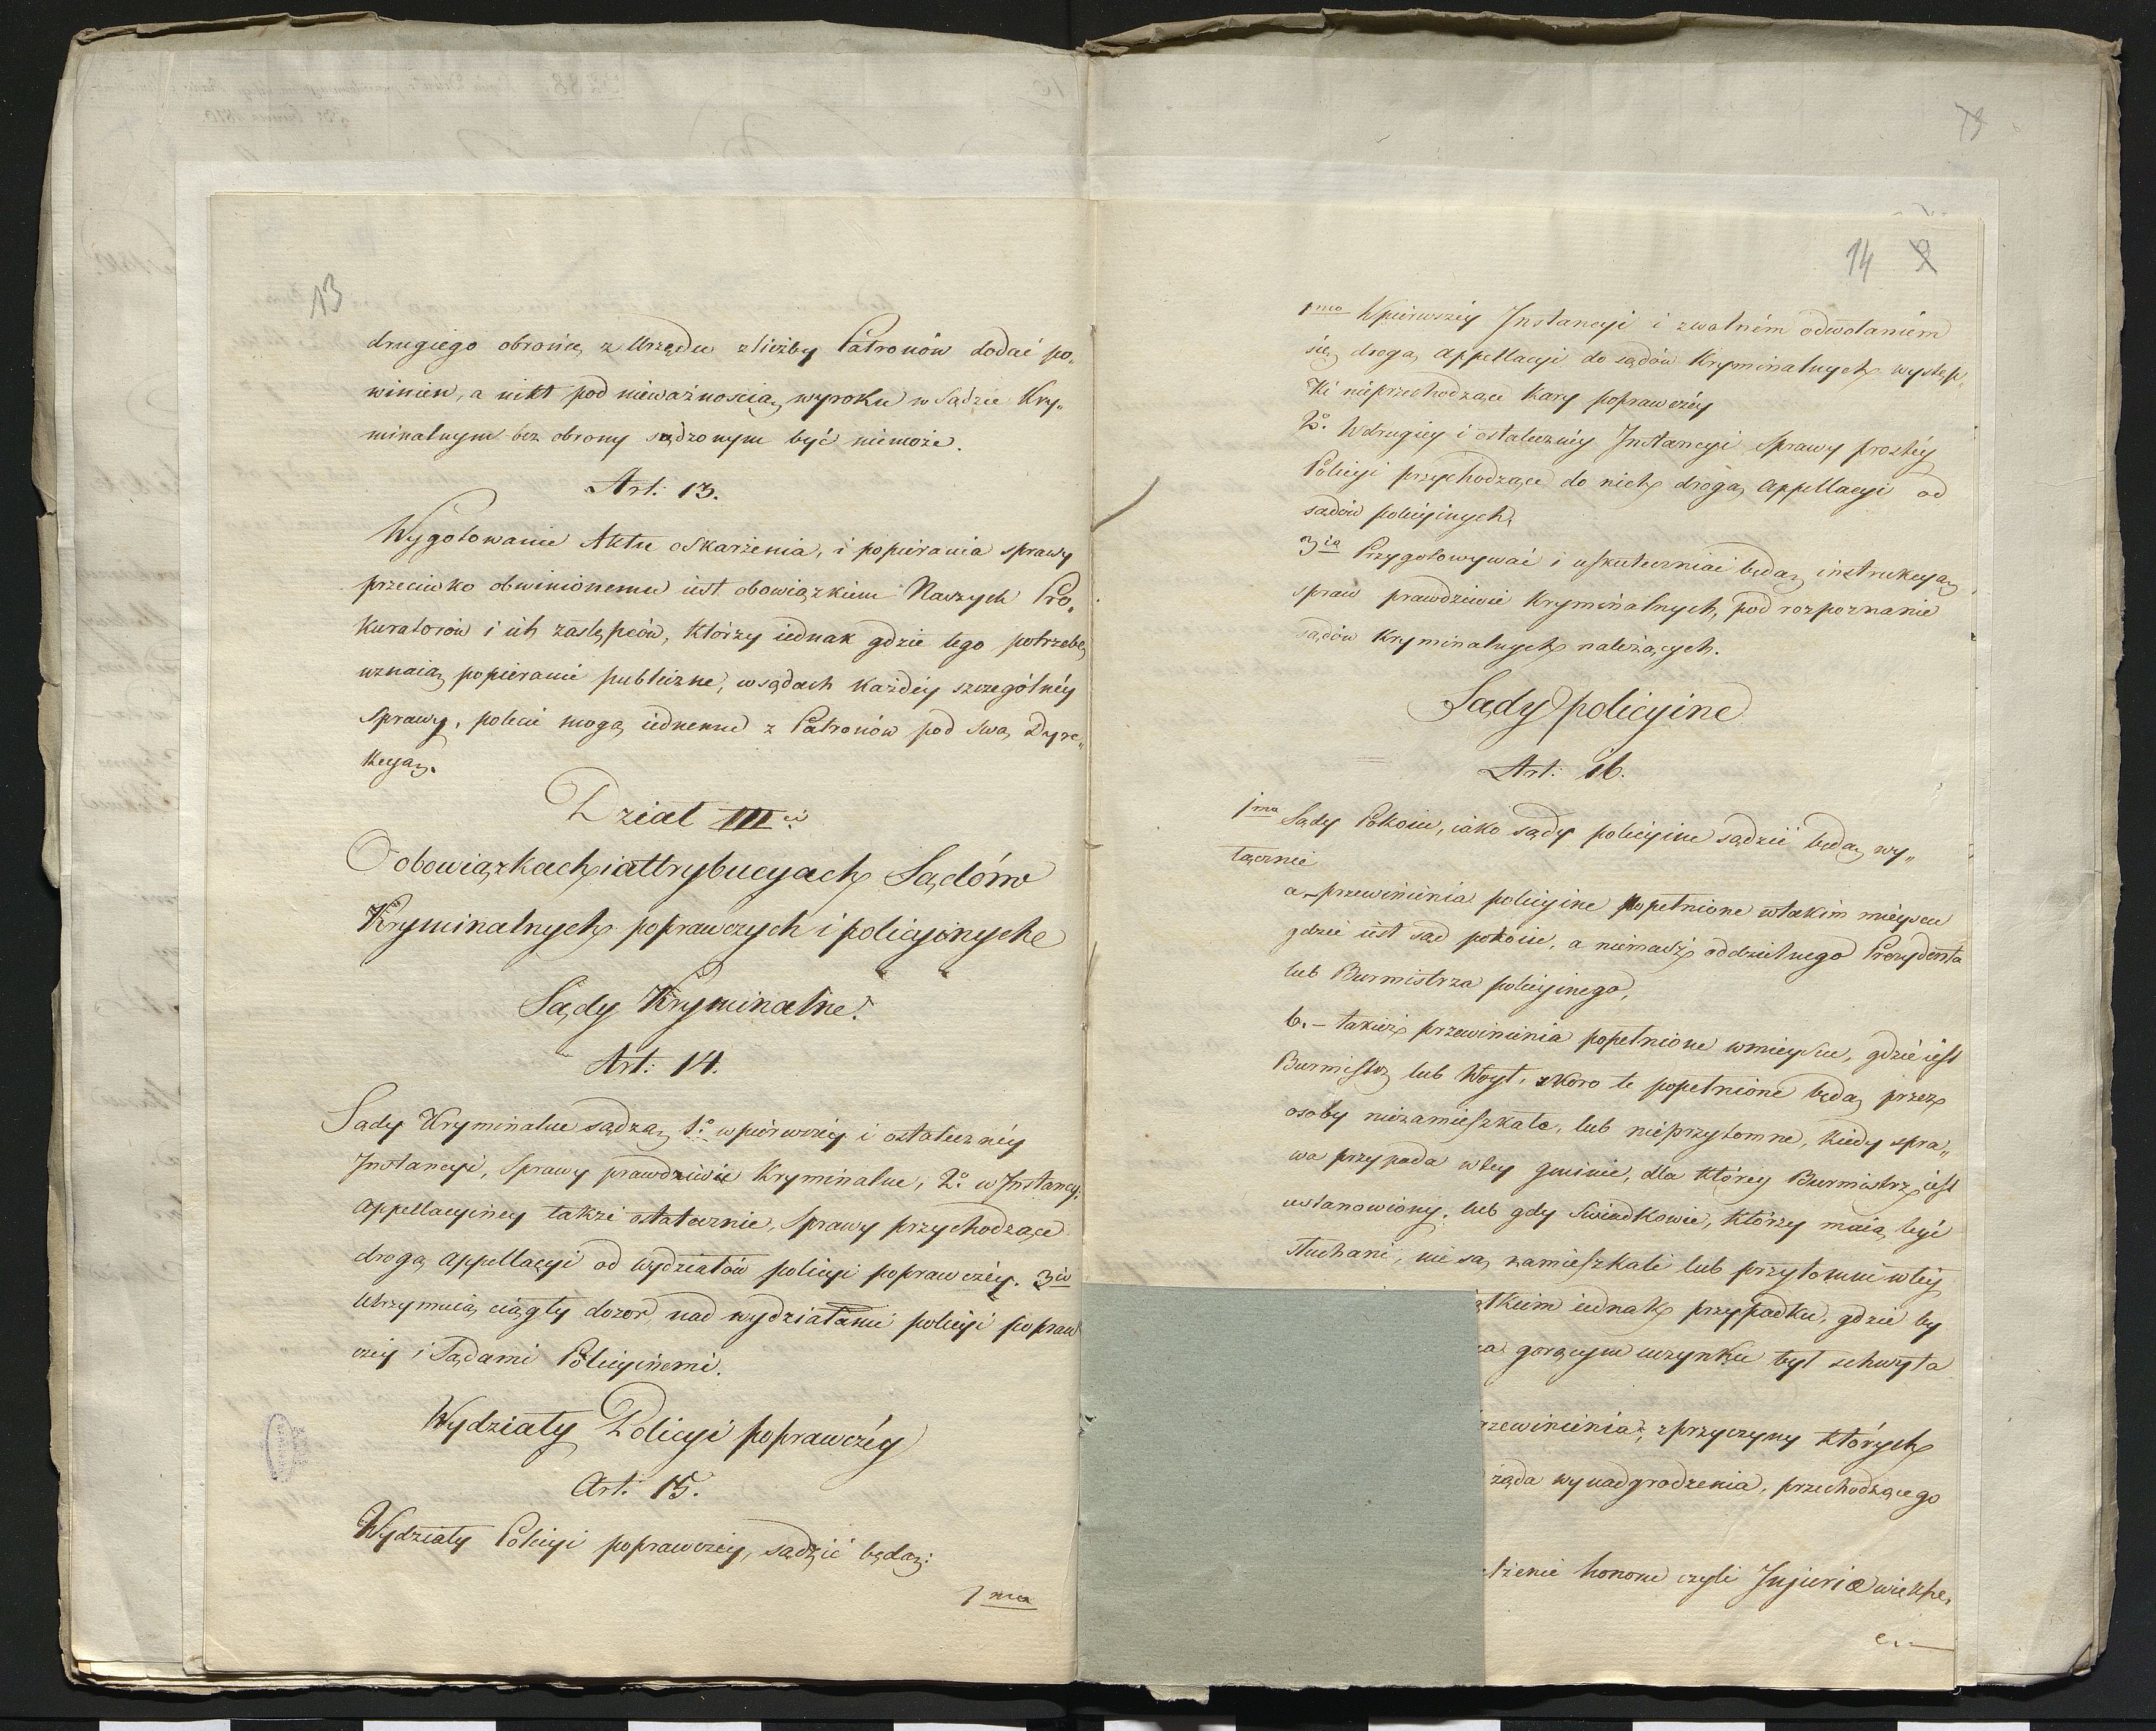 13
drugiego obrońcę z Urzędu z liczby Patronów dodać po„
winien, a nikt pod nieważnością wyroku w Sądzie Kry„
minalnym bez obrony sądzonym być niemoże.
Art: 13.
Wygotowanie Aktu oskarżenia, i popierania sprawy
przeciwko obwinionemu iest obowiązkiem Naszych Pro„
kuratorów i ich zastępców, którzy iednak gdzie tego potrzebę
uznaią popieranie publiczne, w sądach każdéy szczególnéy
Sprawy, polecić mogą iednemu z Patronów pod swą Dyre„
kcyą.
Dział III ci
O obowiązkach i attrybucyach Sądów
Kryminalnych poprawczych i policyinych
Sądy Kryminalne.
Art: 14.
Sądy Kryminalne sądzą 1.o w pierwszéy i ostatecznéy
Instancyi, Sprawy prawdziwie Kryminalne, 2.o w Instancyi
Appellacyiney także ostatecznie, Sprawy przychodzące
drogą Appellacyi od wydziałów policyi poprawczéy. 3io
Utrzymuią ciągły dozor nad wydziałami policyi popraw
czey i Sądami Policyinemi.
Wydziały Policyi poprawczéy
Art: 15.
Wydziały Policyi poprawczey, sądzić będą:
1mo
14
1mo W pierwszéy Instancyi i z wolném odwołaniem
się drogą Appellacyi do sądów Kryminalnych występ„
ki nieprzechodzące kary poprawczéy
2o. W drugiéy i ostatecznéy Instancyi Sprawy prostéy
Policyi przychodzące do nich drogą Appellacyi od
sądów policyinych,
3ia Przygotowywać i uskuteczniać będą instrukcyą
spraw prawdziwie Kryminalnych, pod rozpoznanie
sądów Kryminalnych należących.
Sądy policyine
Art: 16.
1mo Sądy Pokoiu, iako sądy policyine sądzić będą wy„
łącznie
a. przewinienia policyine popełnione w takim mieyscu
gdzie iest sąd pokoiu, a niemasz oddzielnego Prezydenta
lub Burmistrza policyinego,
b. – takież przewinienia popełnione w mieyscu, gdzie iest
Burmistrz lub Woyt, skoro te popełnione będą przez
osoby niezamieszkałe, lub nieprzytomne, kiedy spra„
wa przypada w tey gminie, dla któréy Burmistrz iest
ustanowiony, lub gdy Swiadkowie, którzy maią być
słuchani, nie są zamieszkali lub przytomni w téy
tkim iednak przypadku, gdzie by
a gorącym uczynku był schwyta
rzewinienia, z przyczyny których
żąda wynadgrodzenia, przechodzącego
lżenie honoru czyli Injurie większe,